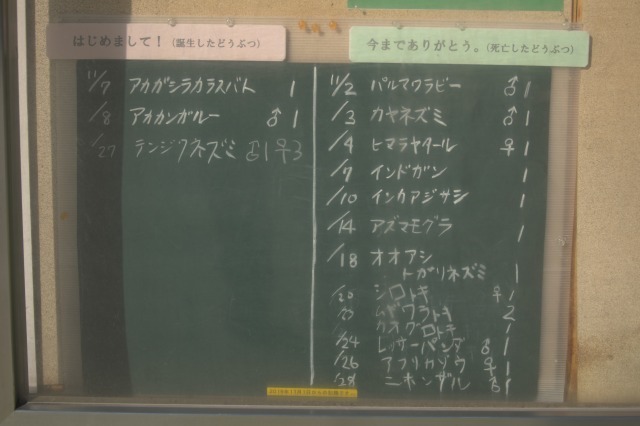 はじめまして！（誕生したどうぶつ）
11/7 アカガシラカラスバト 1
/8 アカカンガルー ♂1
/27 テンジクネズミ ♂1 ♀3
今までありがとう。（死亡したどうぶつ）
11/2 パルマワラビー ♂1
/3 カヤネズミ ♂1
/4 ヒマラヤタール ♀1
/7 インドガン 1
/10 インカアジサシ 1
/14 アズマモグラ 1
/18 オオアシ
トガリネズミ 1
/20 シロトキ ♀1
/23 ムギワラトキ 2
カオグロトキ 1
/24 レッサーパンダ ♂1
/26 アフリカゾウ ♀1
/28 ニホンザル ♂1